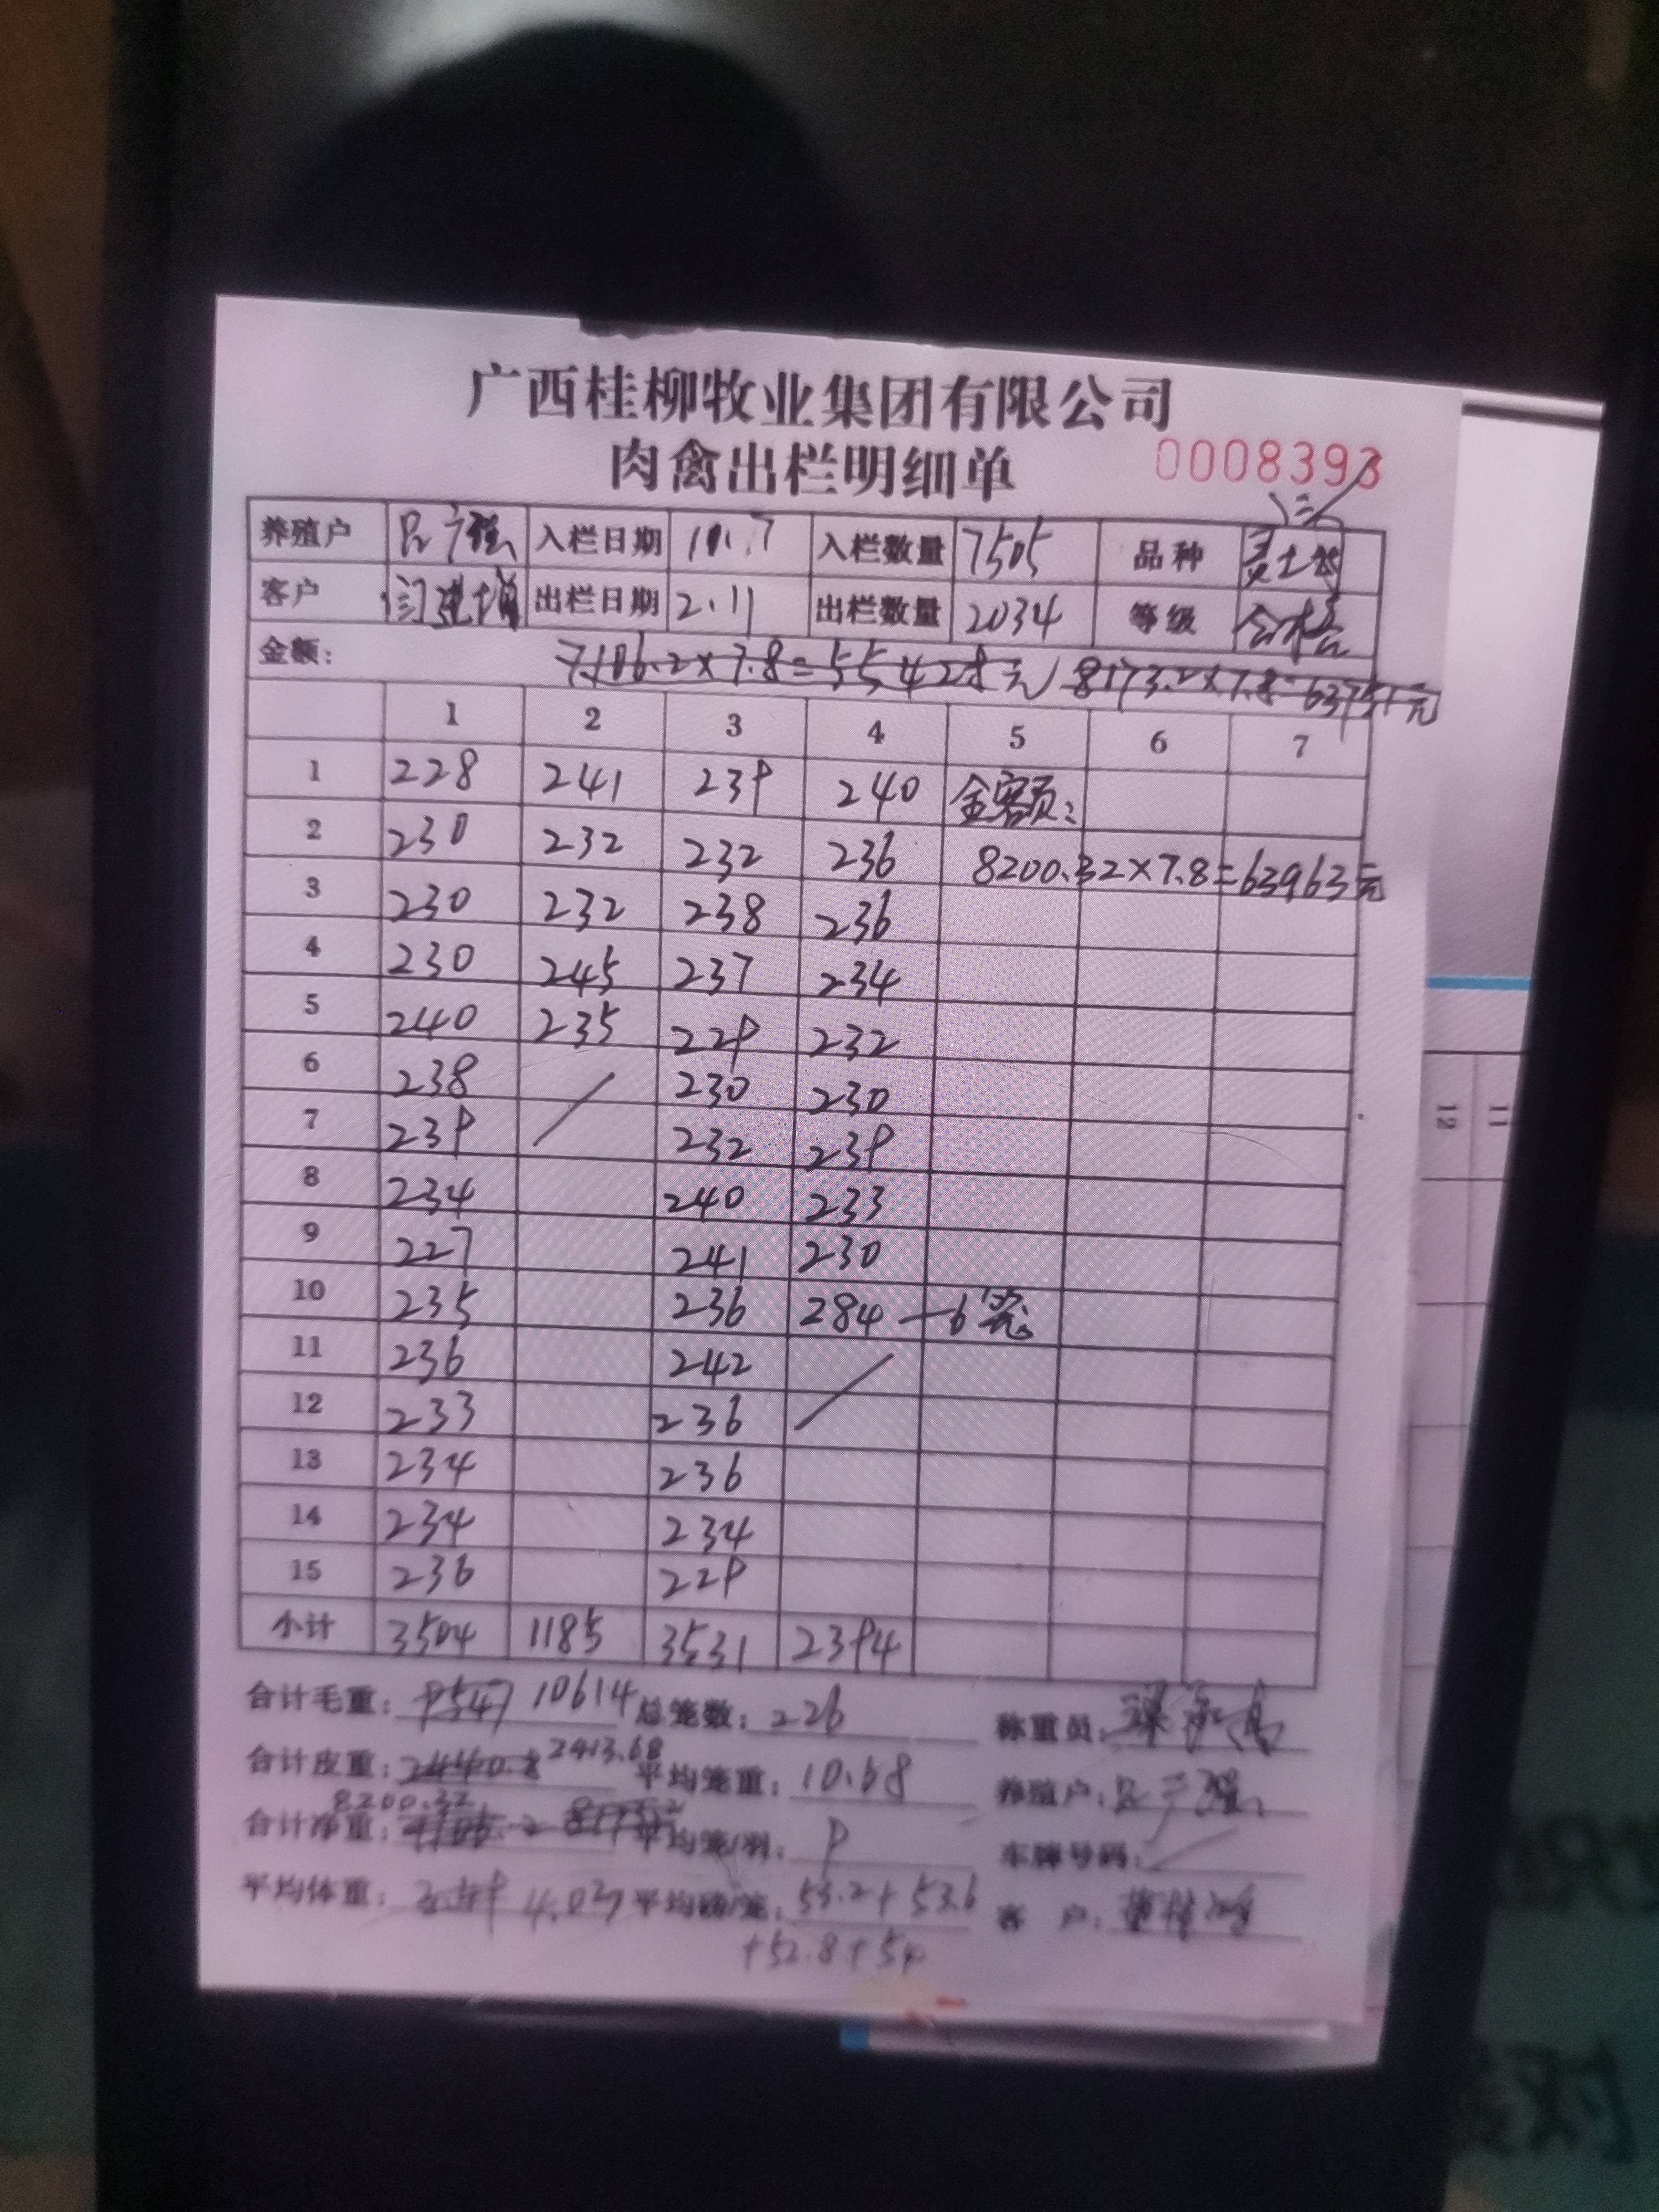 广西桂柳牧业集团有限公司
肉禽出栏明细单 0008393
养殖户 吕广强 入栏日期 10.7 入栏数量 7505 品种
客户 闫建增 出栏日期 2.11 出栏数量 2034 等级 合格
金额: 7106.2×7.8=55428元 8173.2×7.8=63751元
1 2 3 4 5 6 7
1 228 241 239 240 金额:
2 230 232 232 236 8200.32×7.8=63963元
3 230 232 238 236
4 230 245 237 234
5 240 235 229 232
6 238 / 230 230
7 239 232 239
8 234 240 233
9 227 241 230
10 235 236 284 —6笼
11 236 242 /
12 233 236
13 234 236
14 234 234
15 236 229
小计 3504 1185 3531 2394
合计毛重: 9547 10614 总笼数: 226 称重员:
合计皮重: 2440.8 2413.68 平均笼重: 10.68 养殖户:
合计净重: 8200.32 平均笼/羽: 9 车牌号码: /
平均体重: 4.03 平均 /笼: 53.2+53.6 客 户:
+52.8+54
12 11